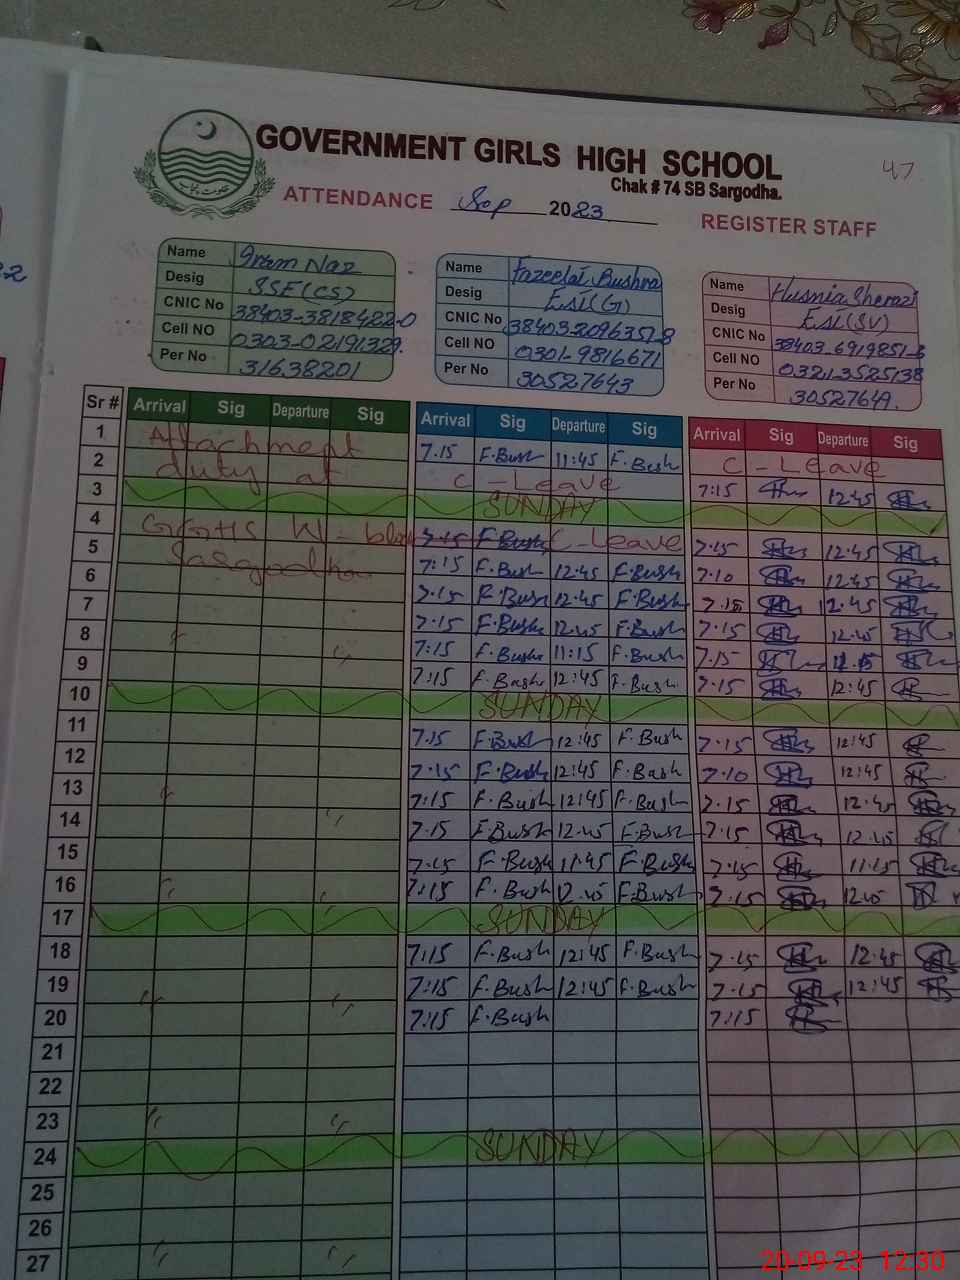 GOVERNMENT GIRLS HIGH SCHOOL
Chak # 74 SB Sargodha.
47
حکومت پنجاب
ATTENDANCE Sep 2023 REGISTER STAFF
Name Iram Naz
Desig SSE(CS)
CNIC No 38403-3818422-0
Cell NO 0303-02191329.
Per No 31638201
Name Fazeelat Bushra
Desig ESE(G)
CNIC No 38403-2096357-8
Cell NO 0301-9816671
Per No 30527643
Name Husnia Sherazi
Desig ESE(SV)
CNIC No 38403-6919851-8
Cell NO 0321-3525138
Per No 30527649.
Sr # Arrival Sig Departure Sig Arrival Sig Departure Sig Arrival Sig Departure Sig
1 Attachment 7.15 F.Bush 11:45 F.Bush C-Leave
2 duty at C-Leave 7:15 12:45
3 SUNDAY
4 GGHS W-block 7.15 F.Bush C-Leave 7.15 12.45
5 Sargodha 7:15 F.Bush 12:45 F.Bush 7.10 12:45
6 7.15 F.Bush 12.45 F.Bush 7.15 12.45
7 7.15 F.Bush 12.45 F.Bush 7.15 12.45
8 " " 7:15 F.Bush 11:15 F.Bush 7.15
9 7:15 F.Bush 12:45 F.Bush 7.15 12:45
10 SUNDAY
11 7.15 F.Bush 12:45 F.Bush 7.15 12:45
12 7.15 F.Bush 12:45 F.Bush 7.10 12:45
13 " 7:15 F.Bush 12:45 F.Bush 7.15 12.45
14 " 7.15 F.Bush 12.45 F.Bush 7.15 12.45
15 7.15 F.Bush 11.45 F.Bush 7.15 11.15
16 " " 7:15 F.Bush 12.45 F.Bush 7.15 12.45
17 SUNDAY
18 7:15 F.Bush 12:45 F.Bush 7.15 12:45
19 " " 7:15 F.Bush 12:45 F.Bush 7.15 12:45
20 7:15 F.Bush 7:15
21
22
23 " "
24 SUNDAY
25
26
27 " "
20-09-23 12:30